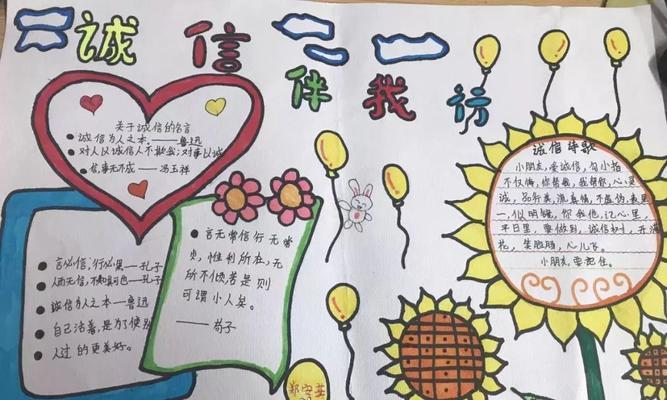 诚信伴我行
关于诚信的名言
诚信为人之本.——鲁迅
对人以诚信人不欺我;对事以诚
信,事无不成——冯玉祥
言必信,行必果——孔子
人而无信,不知其可也——孔子
诚信为人之本——鲁迅
自己活着,是为了使别
人过的更美好。
言无常信行无常
贞,惟利所在,无
所不倾若是则
可谓小人矣。
——荀子
诚信诗歌
小朋友,爱诚信,勾小指
不仅悔,你替我,我帮你,心心灵
诚,品行美,浪真情,不虚伪,表里
一,似明镜,你我他,记心里,
平日里,要做到,诚信
花,笑脸,心儿飞。
小朋友要记住。